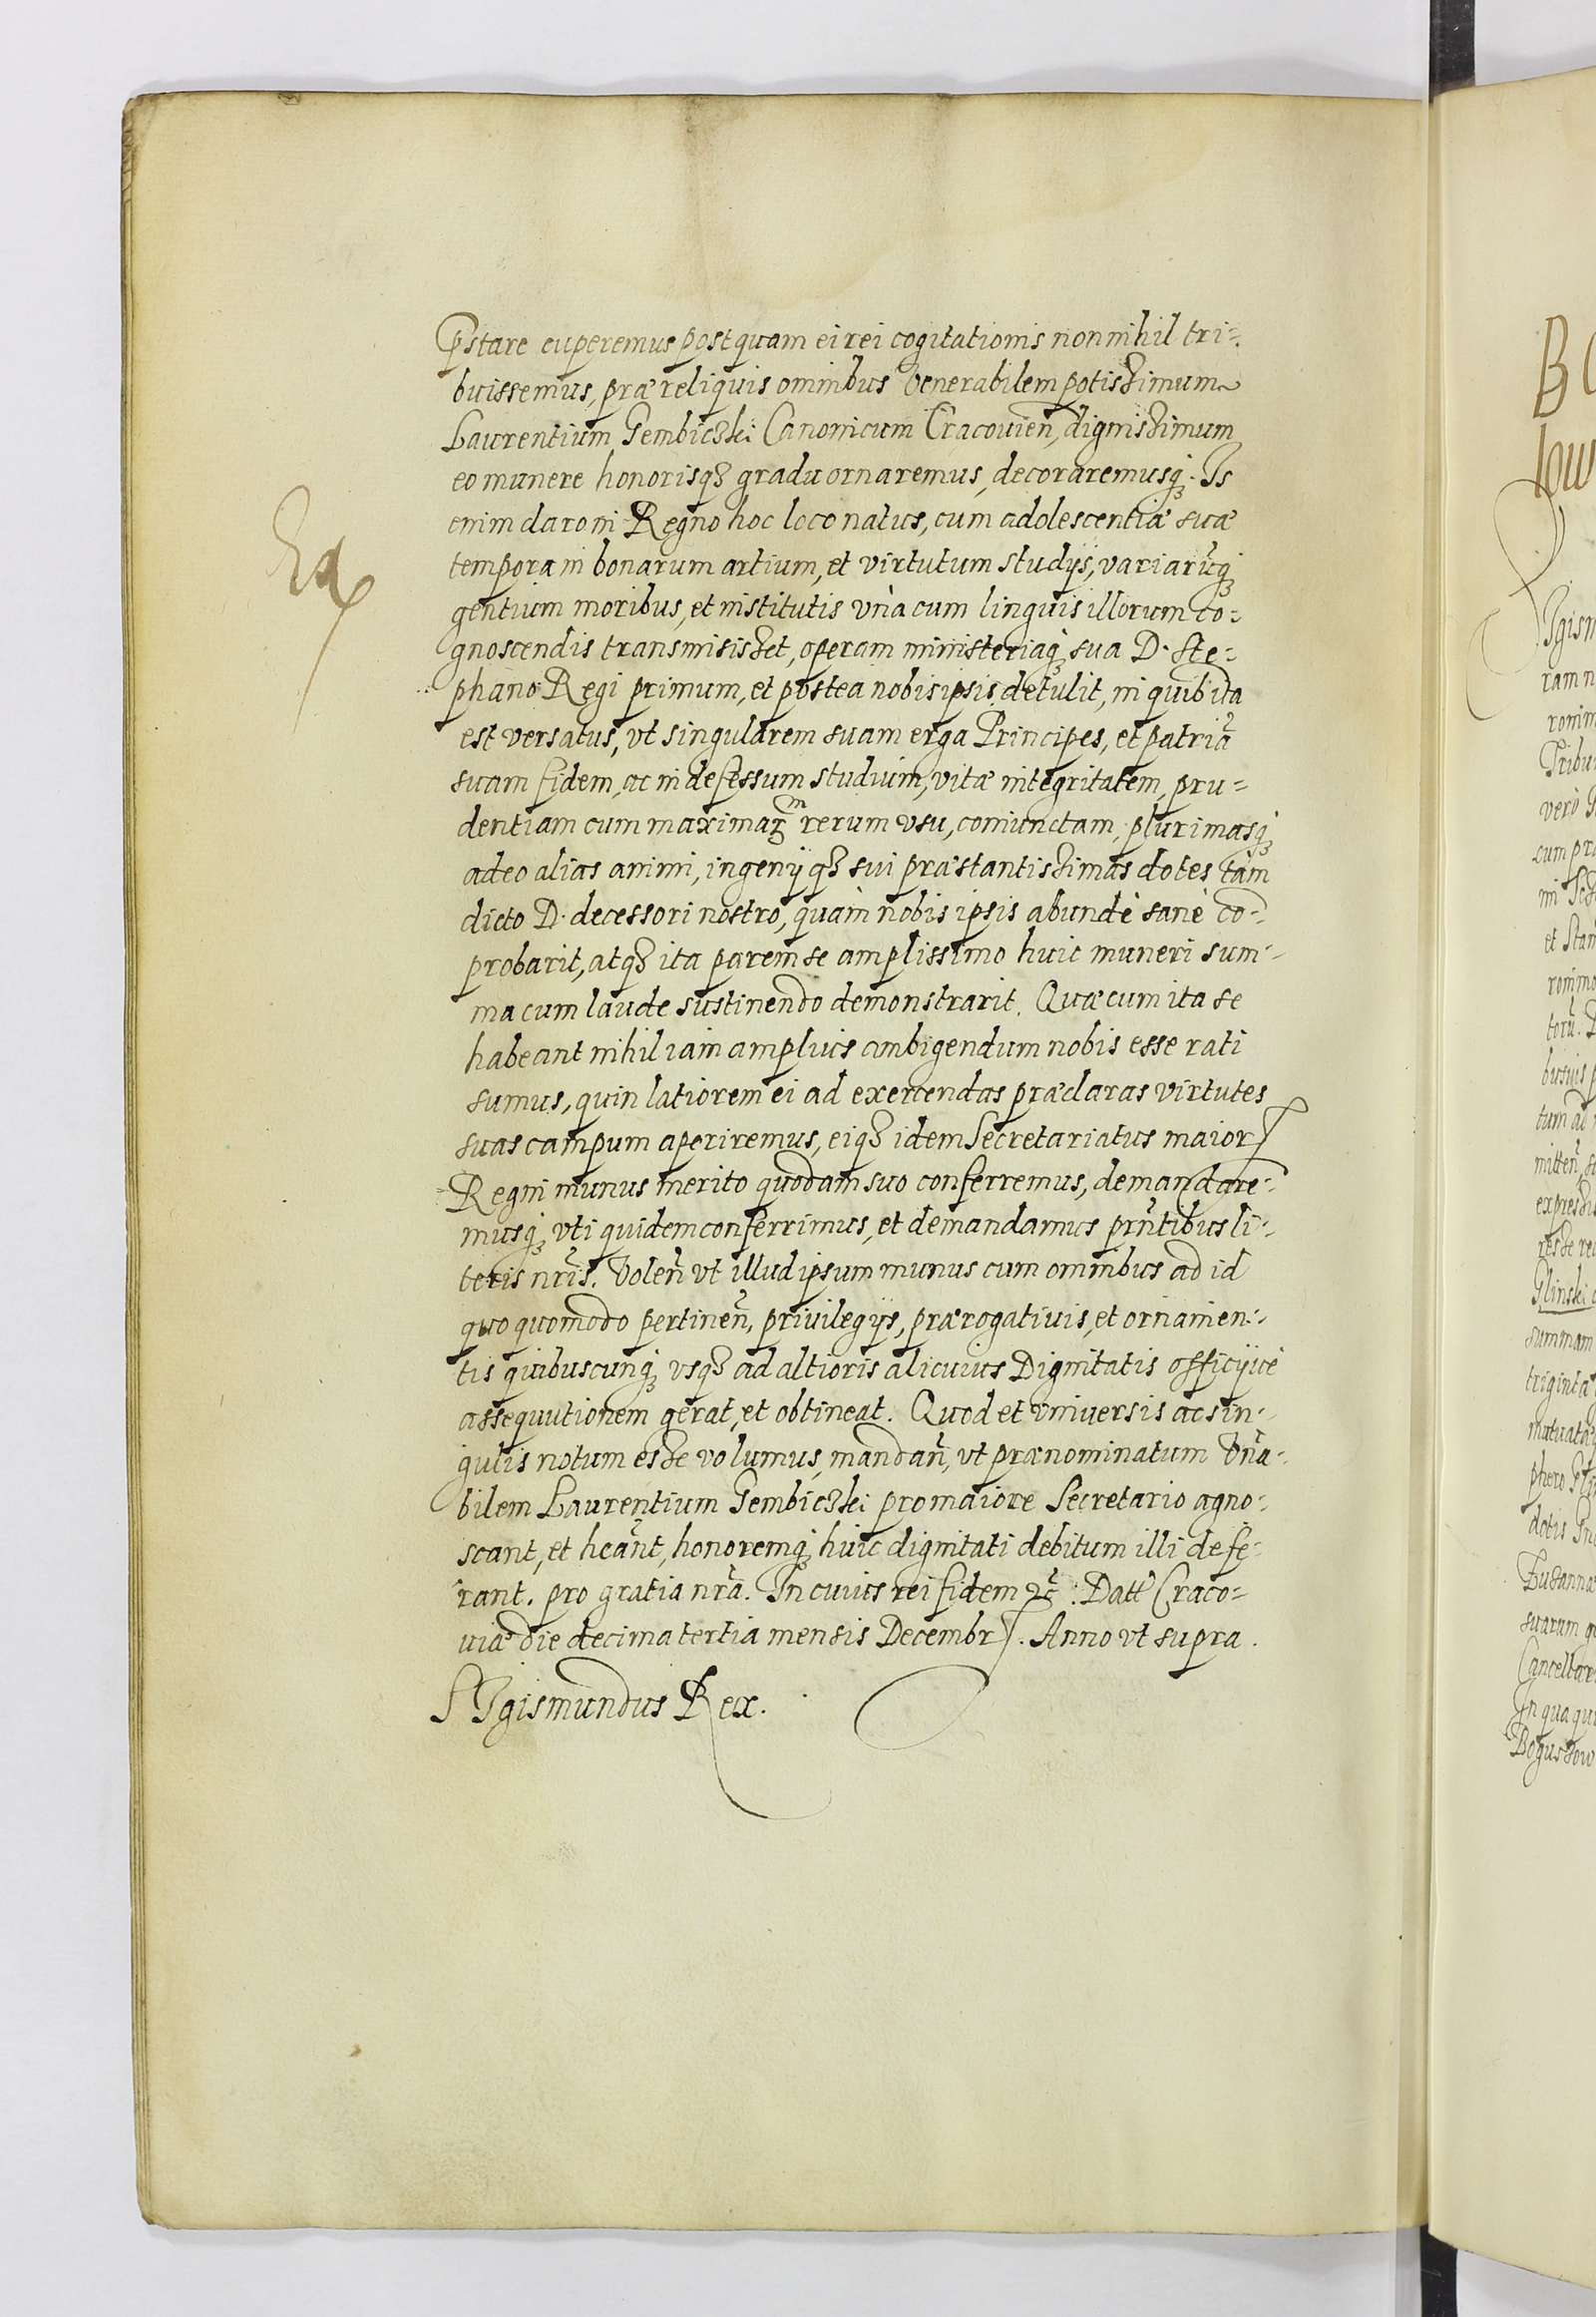 Pstare cuperemus postquam ei rei cogitationis nonnihil tri-
buissemus, præ reliquis omnibus Venerabilem potissimum
Laurentium Gembiczki Canonicum Cracouien̄, dignissimum
eo munere honorisqȝ gradu ornaremus, decoraremusqȝ. Is
enim claro in Regno hoc loco natus, cum adolescentiæ suæ
tempora in bonarum artium, et virtutum studijs, variarūqȝ
gentium moribus, et institutis vnà cum linguis illorum co-
gnoscendis transmisisset, operam ministeriaqȝ sua D. Ste-
phano Regi primum, et postea nobis ipsis detulit, in quib ita
est versatus, vt singularem suam erga Principes, et patriā
suam fidem, ac indefessum studium, vitæ integritatem, pru-
dentiam cum maximaꝝ rerum vsu, coniunctam, plurimasqȝ
adeo alias animi, ingenijqȝ sui præstantissimas dotes tam
dicto D. decessori nostro, quàm nobis ipsis abundè sanè co-
probarit, atqȝ ita parem se amplissimo huic muneri sum-
ma cum laude sustinendo demonstrarit. Quæ cum ita se
habeant nihil iam amplius ambigendum nobis esse rati
sumus, quin latiorem ei ad exercendas præclaras virtutes
suas campum aperiremus, eiqȝ idem Secretariatus maior
Regni munus merito quodam suo conferremus, demandare-
musqȝ vti quidem conferrimus, et demandamus prn̄tibus li-
teris nr̄is. Volen̄ vt illud ipsum munus cum omnibus ad id
quoquomodo pertinen̄, priuilegijs, prærogatiuis, et ornamen-
tis quibuscunqȝ vsqȝ ad altioris alicuius Dignitatis officijuè
assequutionem gerat, et obtineat. Quod et vniuersis ac sin-
gulis notum esse volumus, mandan̄, vt prænominatum Vn̄a-
bilem Laurentium Gembiczki pro maiore Secretario agno-
scant, et hean̄t, honoremqȝ huic dignitati debitum illi defe-
rant. pro gratia nr̄a. In cuius rei fidem ꝛc̄. Datt Craco-
uiæ die decima tertia mensis Decembr. Anno vt supra.
SIgismundus Rex.